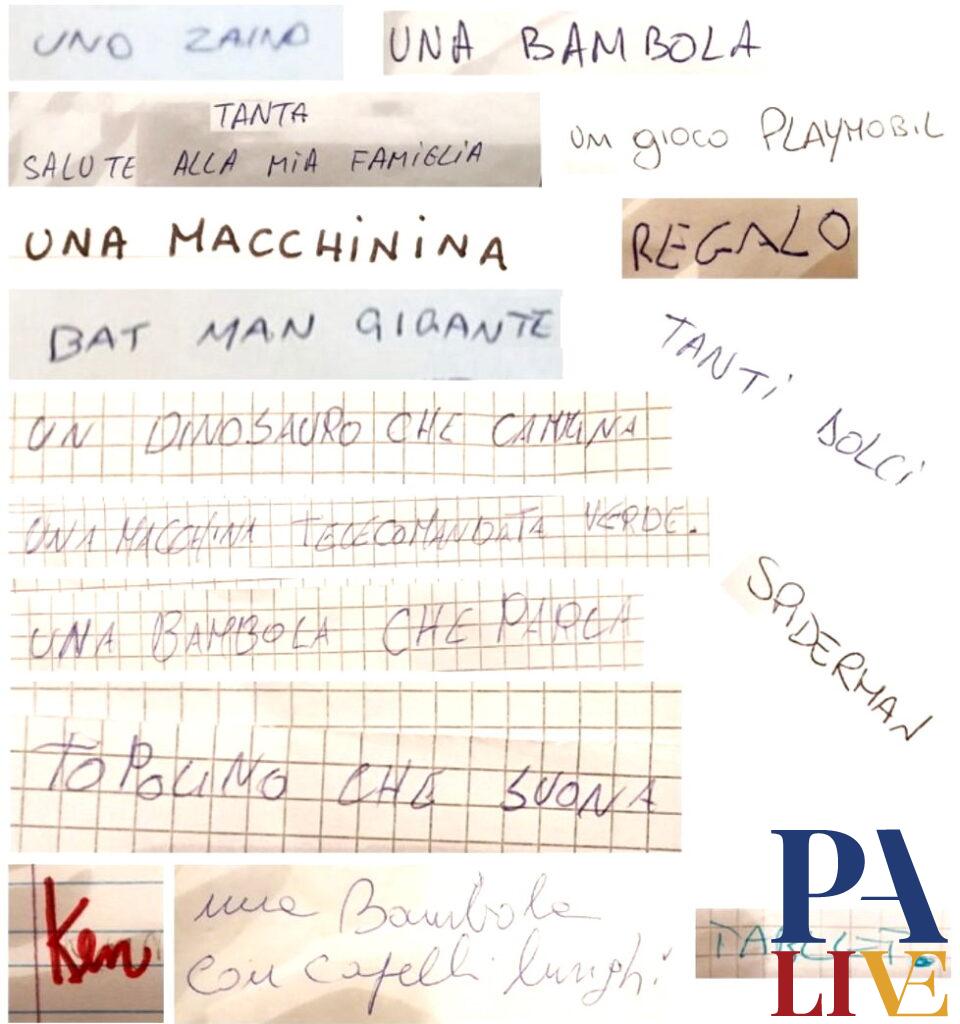 UNO ZAINO
UNA BAMBOLA
TANTA
SALUTE ALLA MIA FAMIGLIA
UN GIOCO PLAYMOBIL
UNA MACCHININA
REGALO
BAT MAN GIGANTE
TANTI DOLCI
UN DINOSAURO CHE CAMMINA
UNA MACCHINA TELECOMANDATA VERDE.
SPIDERMAN
UNA BAMBOLA CHE PARLA
TOPOLINO CHE SUONA
Ken
una Bambola
con capelli lunghi
TABLET.
PA
LIVE